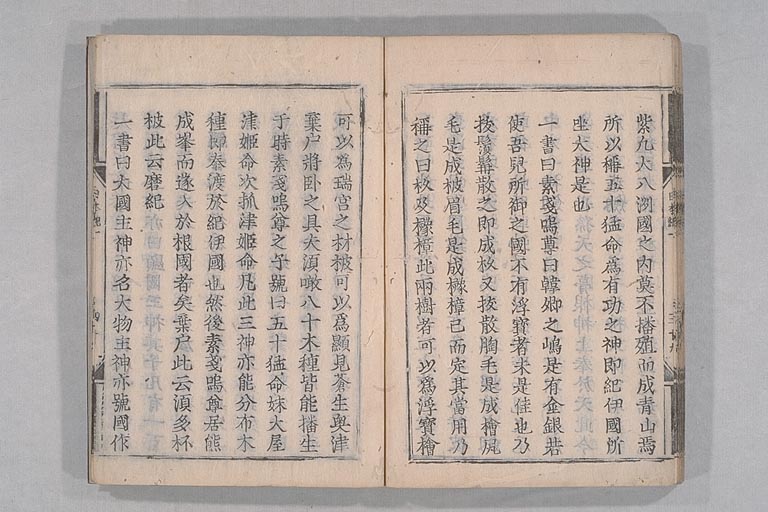 紫凡大八洲國之內莫不播殖而成青山焉
所以稱五十猛命爲有功之神即紀伊國所
坐大神是也
一書曰素戔嗚尊曰韓鄕之嶋是有金銀若
使吾兒所御之國不有浮寶者未是佳也乃
拔鬚髯散之即成杉又拔散胸毛是成檜尻
毛是成柀眉毛是成櫲樟已而定其當用乃
稱之曰杉及櫲樟此兩樹者可以爲浮寶檜
可以爲瑞宮之材柀可以爲顯見蒼生奧津
棄戶將臥之具夫須噉八十木種皆能播生
于時素戔嗚尊之子號曰五十猛命妹大屋
津姬命次抓津姬命凡此三神亦能分布木
種即奉渡於紀伊國也然後素戔嗚尊居熊
成峯而遂入於根國者矣棄戶此云須多杯
柀此云磨紀
一書曰大國主神亦名大物主神亦號國作